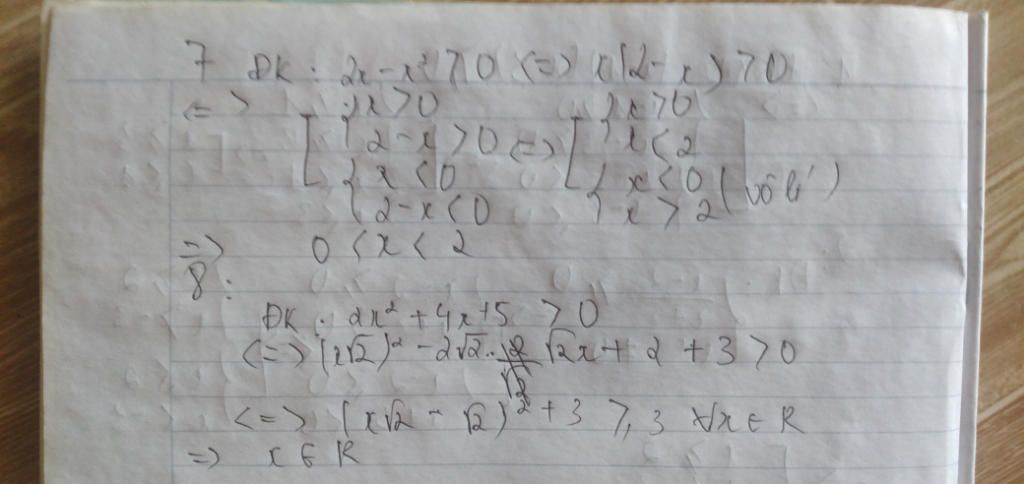 7 ĐK : 2x - x² > 0 <=> x(2 - x) > 0
<=> [ { x > 0 { x > 0
2 - x > 0 <=> [ x < 2
{ x < 0 { x < 0 (vô lí)
2 - x < 0 x > 2
=> 0 < x < 2
8 :
ĐK : 2x² + 4x + 5 > 0
<=> (x√2)² - 2√2 . √2x + 2 + 3 > 0
<=> (x√2 - √2)² + 3 ≥ 3 ∀x ∈ R
=> x ∈ R